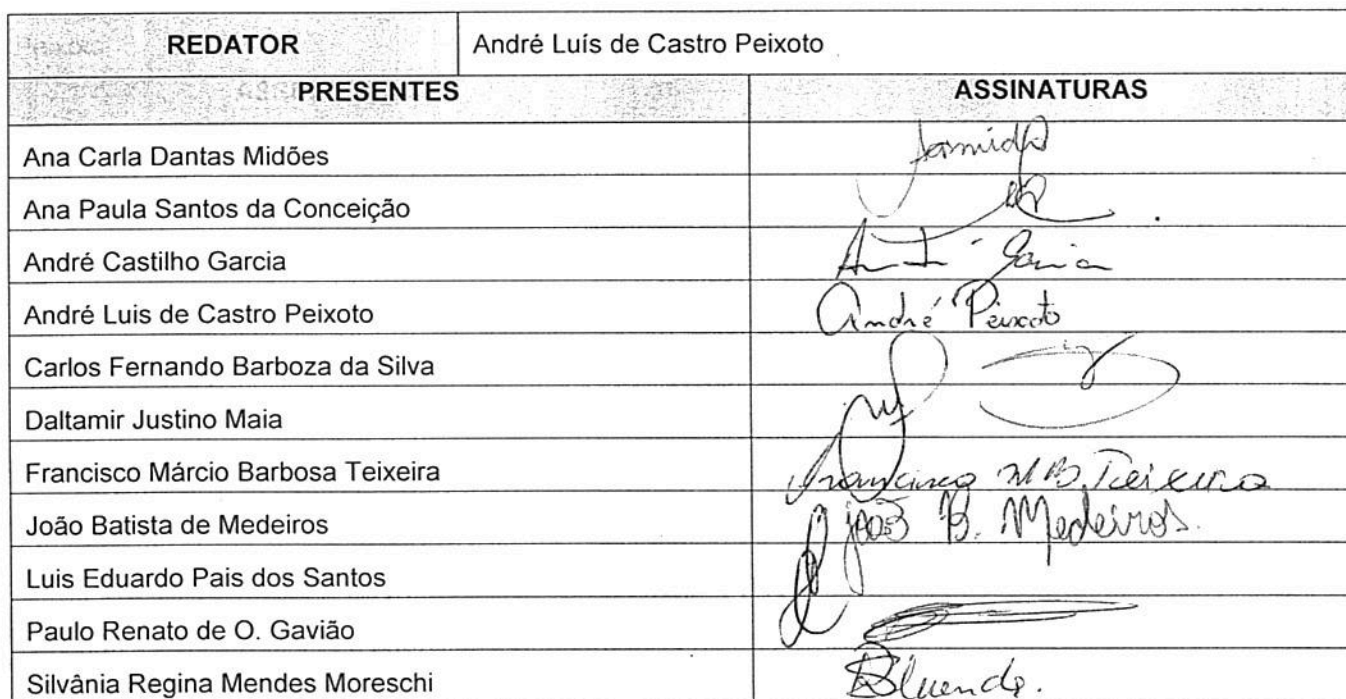 REDATOR André Luís de Castro Peixoto
PRESENTES ASSINATURAS
Ana Carla Dantas Midões
Ana Paula Santos da Conceição
André Castilho Garcia
André Luis de Castro Peixoto André Peixoto
Carlos Fernando Barboza da Silva
Daltamir Justino Maia
Francisco Márcio Barbosa Teixeira Francisco M B. Teixeira
João Batista de Medeiros João B. Medeiros.
Luis Eduardo Pais dos Santos
Paulo Renato de O. Gavião
Silvânia Regina Mendes Moreschi